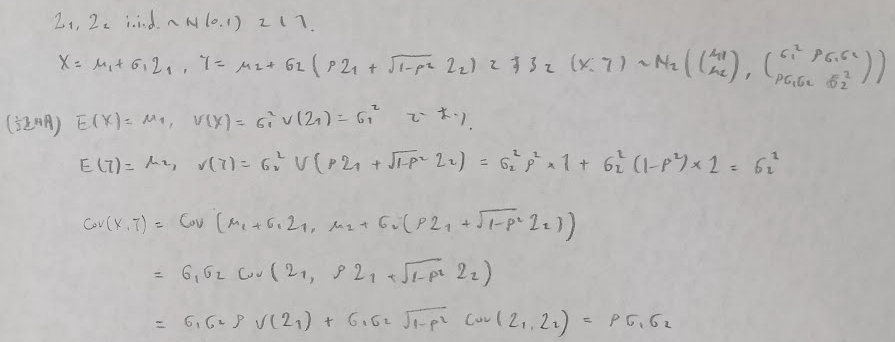 Z₁, Z₂ i.i.d. ~ N(0,1) として.
X = μ₁ + σ₁Z₁, Y = μ₂ + σ₂(ρZ₁ + √(1-ρ²) Z₂) とすると (X,Y) ~ N₂((μ₁ μ₂), (σ₁² ρσ₁σ₂ ρσ₁σ₂ σ₂²))
(証明) E(X) = μ₁, V(X) = σ₁² V(Z₁) = σ₁² であり.
E(Y) = μ₂, V(Y) = σ₂² V(ρZ₁ + √(1-ρ²) Z₂) = σ₂²ρ² × 1 + σ₂²(1-ρ²) × 1 = σ₂²
Cov(X,Y) = Cov(μ₁ + σ₁Z₁, μ₂ + σ₂(ρZ₁ + √(1-ρ²) Z₂))
= σ₁σ₂ Cov(Z₁, ρZ₁ + √(1-ρ²) Z₂)
= σ₁σ₂ρ V(Z₁) + σ₁σ₂ √(1-ρ²) Cov(Z₁,Z₂) = ρσ₁σ₂